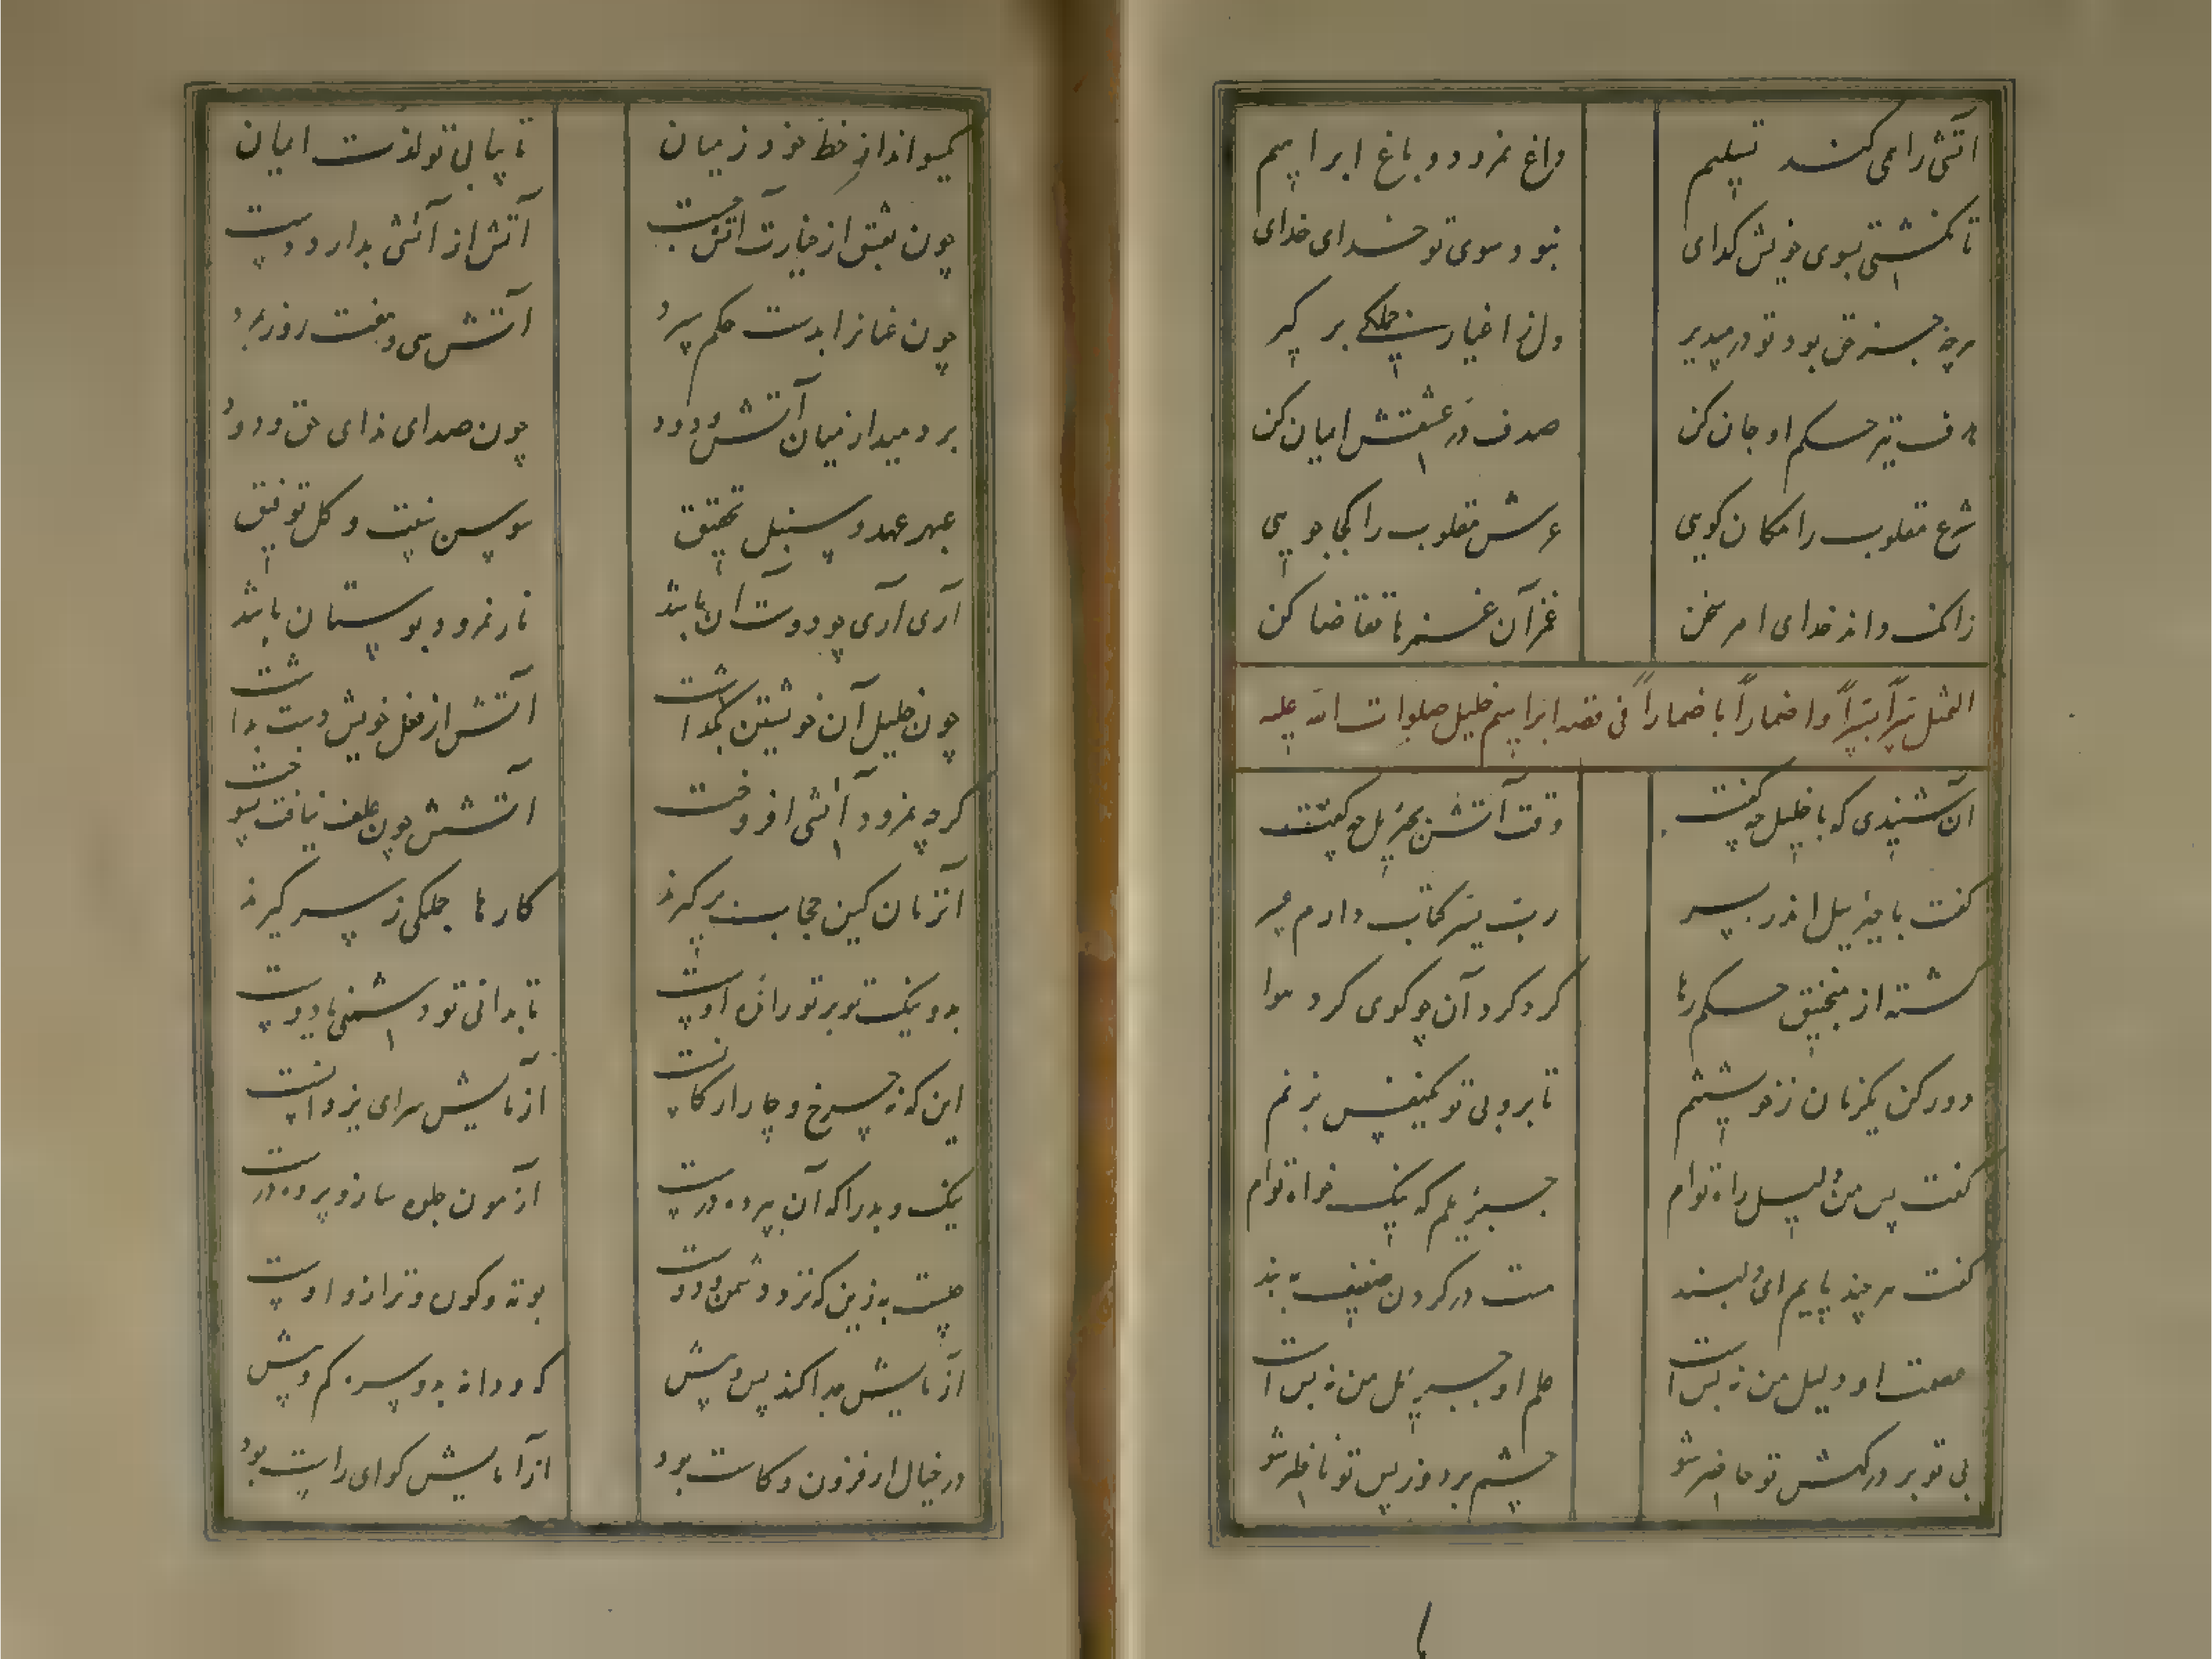 آتشی را همی کند تسلیم داغ نمرود و باغ ابراهیم
تا نکشتی بسوی خویش کدای نبود سوی تو خدای خدای
هرچه جز حق بود تو در مپذیر دل از اغیار جملکی بر کیر
هدف تیر حکم او جان کن صدف در عشقش ایمان کن
شرع مقلوب را مکان کویی عرش مقلوب را کجا جویی
زانک داند خدای امر سخن
التمثل سراً بسراً واضماراً باضماراً فی قصه ابراهیم خلیل صلوات الله علیه
آن شنیدی که با خلیل چه کفت وقت آتش بجبرئیل چه کفت
کفت با جبرئیل اندر سر
کشته از منجنیق حکم رها کرد کرد آن چو کوی کرد هوا
دور کن یکزمان ز خویشتنم تا بروبی تو یکنفس بزنم
کفت پس من دلیل راه توام جبرئیلم که نیک خواه توام
کفت هرچند پایم ای دلبند هست در کردن ضعیف به بند
عصمت او دلیل من نه بس است علم او جبرئیل من نه بس است
بی تو بر درکهش تو حاضر شو چشم بردوز پس تو ناظر شو
کیسو انداز خط خود ز میان تا بیابی تو لذت ایمان
چون بعشق از خیارت آتش جست آتش از آتشی بدارد دست
چون عنانرا بدست حکم سپرد آتش سی و هفت روز ببرد
بردمید از میان آتش و دود چون صدای ندای حق ودود
عبهر عهد و سنبل تحقیق سوسن نیت و کل توفیق
آری آری چو دوست آن باشد نار نمرود بوستان باشد
چون خلیل آن خویشتن بکذاشت آتش از فعل خویش دست بداشت
کرچه نمرود آتشی افروخت آتشش چون علف نیافت بسوخت
آنزمان کین حجاب برکیرند کارها جملکی ز سر کیرند
بد و نیک تو بر تو راندۀ اوست تا بدانی تو دشمنی یا دوست
این که نه چرخ و چار ارکانست آزمایش سرای یزدانست
نیک و بد را که آن پرده درست آزمون جلوه ساز و پرده درست
چیست به زین که نزد دشمن و دوست بوته و کوره و ترازو اوست
آزمایش جدا کند پس و پیش که و دانه بد و سره کم و بیش
در خیال ار فزون و کاست بود از آزمایش کوای راست بود